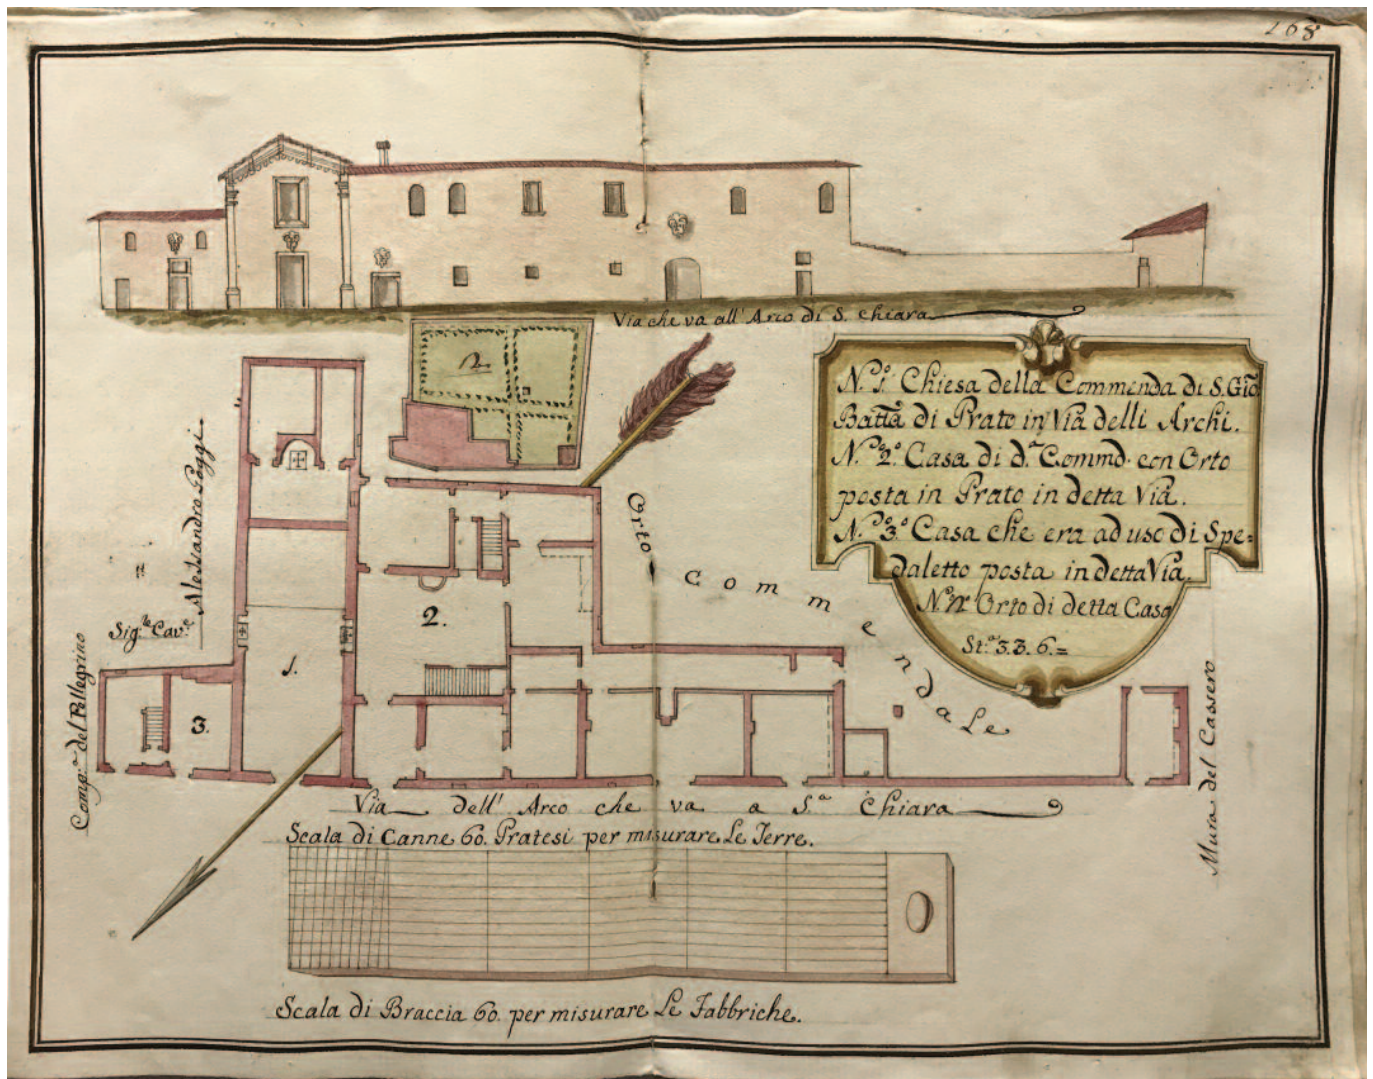 268
Via che va all' Arco di S. Chiara
N.º 1.º Chiesa della Commenda di S. Gio.
Batta di Prato in Via delli Archi.
N.º 2.º Casa di d.ª Commd. con Orto
posta in Prato in detta Via.
N.º 3.º Casa che era ad uso di Spe=
daletto posta in detta Via.
Orto di detta Casa
St.ª 3. 3. 6.=
Orto Commendale
Sig.re Cav.e Alessandro Poggi
Comp.ª del Pellegrino
1.
2.
3.
Mura del Cassero
Via dell' Arco che va a S.ª Chiara
Scala di Canne 60. Pratesi per misurare Le Terre.
Scala di Braccia 60. per misurare Le Fabbriche.